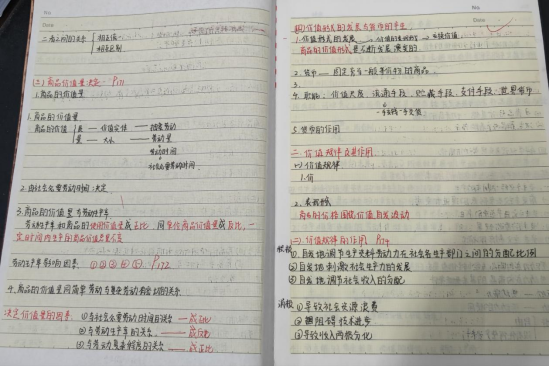 二者之间的关系
相互统一
相互区别
(三)商品价值量决定 P171
1.商品的价值量
1.商品的价值量
商品的价值 质 — 价值实体 — 抽象劳动
量 — 大小 — 劳动量
劳动时间
社会必要劳动时间
2.由社会必要劳动时间决定
3.商品的价值量与劳动生产率
劳动生产率和商品的使用价值量成正比,同单位商品价值量成反比,一
定时间内生产的商品价值总量不变
劳动生产率影响因素:①②③④⑤ P172
4.商品的价值量同简单劳动与复杂劳动有密切的关系
决定价值量的因素 ①与社会必要劳动时间的关系 — 成正比
②与劳动生产率的关系 — 成反比
③与劳动复杂程度的关系 — 成正比
(四)价值形式的发展与货币的产生
1.价值形式的发展 交换价值
商品的价值形式是不断发展演变的
2.货币 — 固定充当一般等价物的商品
3.
4.职能:价值尺度、流通手段、贮藏手段、支付手段、世界货币
5.货币的作用
二 价值规律及其作用
(一)价值规律
1.
2.表现形式
商品的价格围绕价值自发波动
(二)价值规律的作用 P174
积极
①自发地调节生产资料和劳动力在社会各生产部门之间的分配比例
②自发地刺激社会生产力的发展
③自发地调节社会收入的分配
消极
①导致社会资源浪费
②阻碍技术进步
③导致收入两极分化